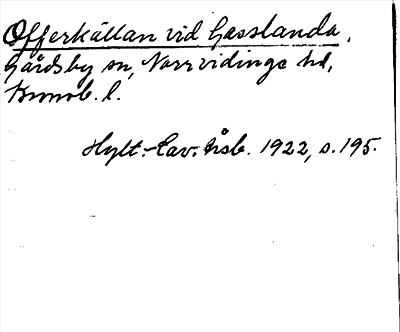 Offerkällan vid Gasslanda,
Gårdsby sn, Norrvidinge hd,
Kronob. l.
Hylt.-Cav. årsb. 1922, s. 195.